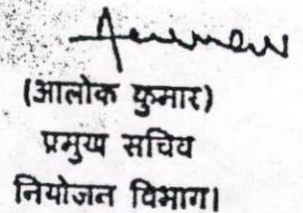 (आलोक कुमार)
प्रमुख सचिव
नियोजन विभाग।